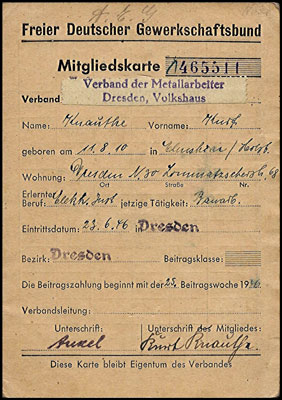 Freier Deutscher Gewerkschaftsbund
Mitgliedskarte 1465511
Verband der Metallarbeiter
Verband Dresden, Volkshaus
Name: Knauthe Vorname: Kurt
geboren am 11.8.10 in
Wohnung: Dresden N30
Ort Straße Nr.
Erlernter
Beruf: Elektr. Inst. jetzige Tätigkeit:
Eintrittsdatum: 23.6.46 in Dresden
Bezirk: Dresden Beitragsklasse:
Die Beitragszahlung beginnt mit der Beitragswoche 19
Verbandsleitung:
Unterschrift: Unterschrift des Mitgliedes:
Kurt Knauthe
Diese Karte bleibt Eigentum des Verbandes